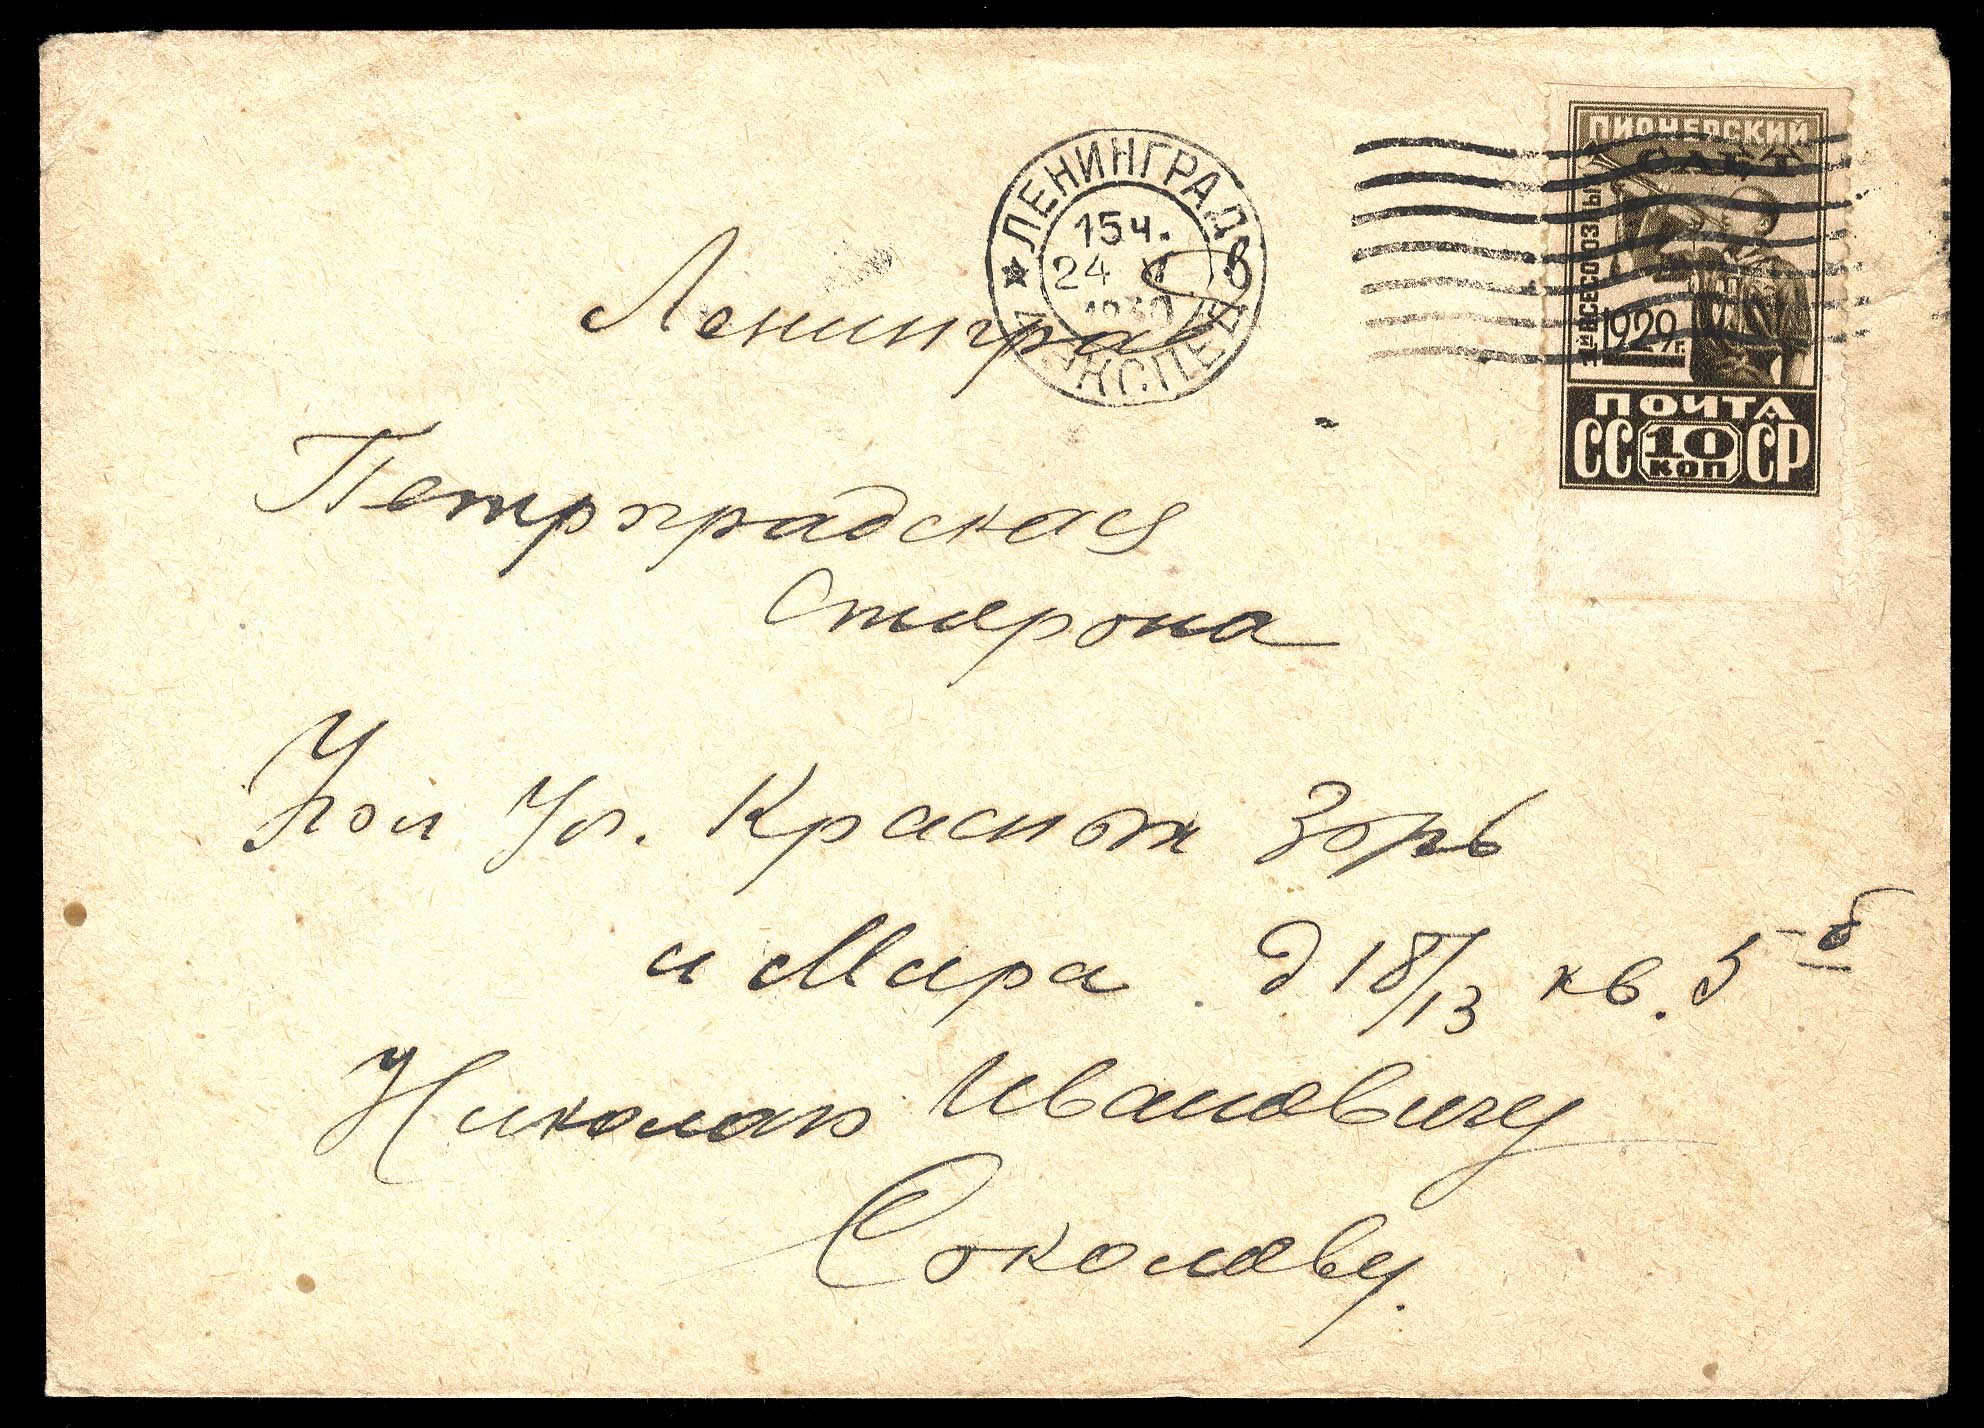 ЛЕНИНГРАД
15ч.
24 V
1930
ЭКСПЕД
ПИОНЕРСКИЙ
СЛЕТ
1-Й ВСЕСОЮЗНЫЙ
1929г.
ПОЧТА
СС 10 СР
КОП
Ленинград
Петроградская
Сторона
Угол Ул. Красных Зорь
и Мира д 18/13 кв. 5-б
Николаю Ивановичу
Соколову.